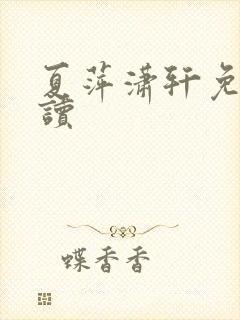 夏萍潇轩免
讀
蝶香香